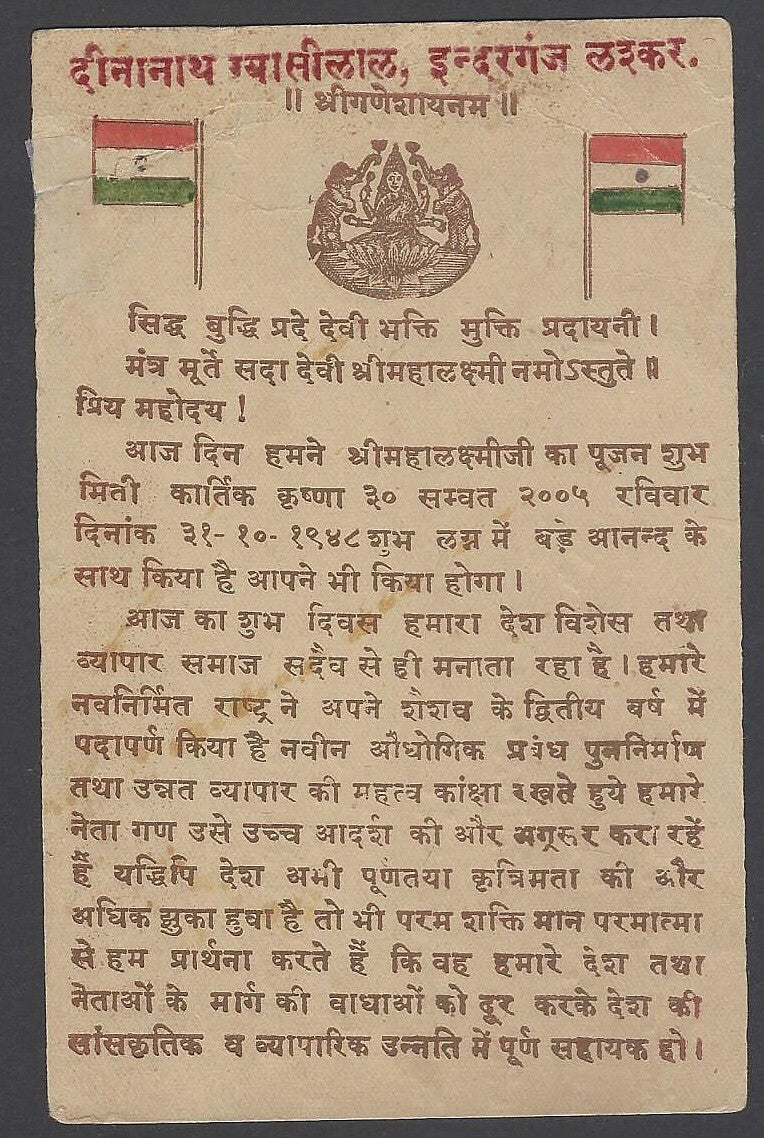 दीनानाथ ग्यासीलाल, इन्दरगंज लश्कर.
॥ श्रीगणेशायनम ॥
सिद्ध बुद्धि प्रदे देवी भक्ति मुक्ति प्रदायनी।
मंत्र मूर्ते सदा देवी श्रीमहालक्ष्मी नमोऽस्तुते ॥
प्रिय महोदय !
आज दिन हमने श्रीमहालक्ष्मीजी का पूजन शुभ
मिती कार्तिक कृष्णा ३० सम्वत २००५ रविवार
दिनांक ३१-१०-१९४८ शुभ लग्न में बड़े आनन्द के
साथ किया है आपने भी किया होगा।
आज का शुभ दिवस हमारा देश विशेस तथा
व्यापार समाज सदैव से ही मनाता रहा है। हमारे
नवनिर्मित राष्ट्र ने अपने शैशव के द्वितीय वर्ष में
पदापर्ण किया है नवीन औधोगिक प्रबंध पुननिर्माण
तथा उन्नत व्यापार की महत्व कांक्षा रखते हुये हमारे
नेता गण उसे उच्च आदर्श की और अग्रसर करा रहें
हैं यद्धिपि देश अभी पूणतया कृत्रिमता की और
अधिक झुका हुवा है तो भी परम शक्ति मान परमात्मा
से हम प्रार्थना करते हैं कि वह हमारे देश तथा
नेताओं के मार्ग की वाधाओं को दूर करके देश की
सांसकृतिक व व्यापारिक उन्नति में पूर्ण सहायक हो।